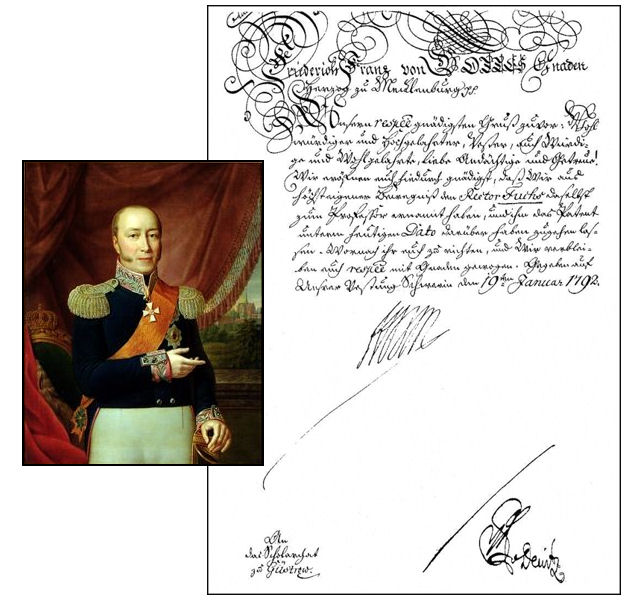 Friederich Franz von GOTTES Gnaden
Herzog zu Mecklenburg pp.
Unsern respve gnädigsten Gruß zuvor. Wohl
würdiger und Hochgelahrter, Vester, auch Würdi-
ge und Wohlgelahrte, liebe Andächtige und Getreue!
Wir eröfnen euch hiedurch gnädigst, daß Wir aus
höchsteigener Bewegniß den Rector Fuchs daselbst
zum Professor ernannt haben, und ihm das Patent
unterm heutigen Dato darüber haben zugehen las-
sen. Wornach ihr euch zu richten, und Wir verblei-
ben euch respve mit Gnaden gewogen. Gegeben auf
Unserer Vestung Schwerin den 19ten Januar 1792.
An
das Scholarchat
zu Güstrow.